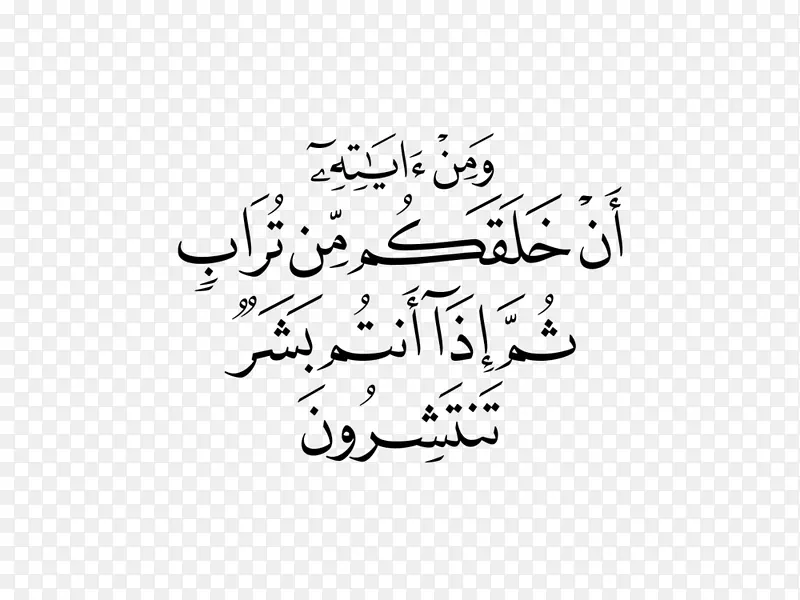 وَمِنْ ءَايَـٰتِهِۦٓ
أَنْ خَلَقَكُم مِّن تُرَابٍ
ثُمَّ إِذَآ أَنتُم بَشَرٌ
تَنتَشِرُونَ